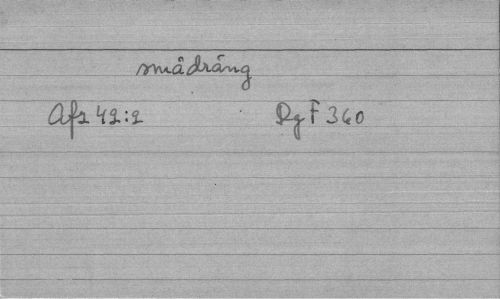 smådräng
Af2 42:2 Rg F 360